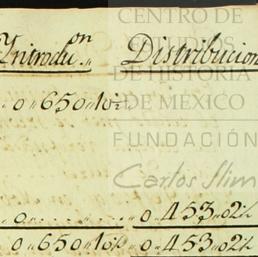 CENTRO DE
Introdu.on Distribucion
DE HISTORIA
DE MÉXICO
..0,,650,,10½
FUNDACIÓN
Carlos Slim
0.......... ,,0,,453,,02½
0,,650,,10½ ,,0,,453,,02½